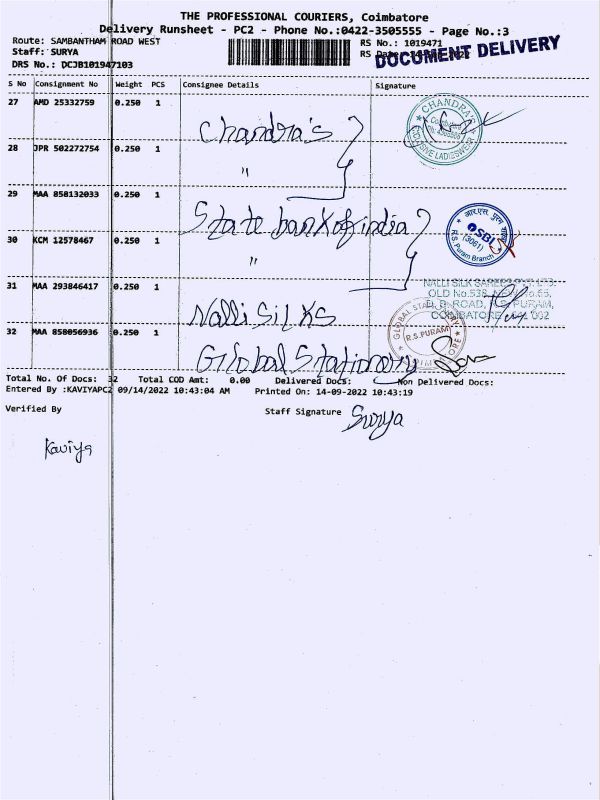 THE PROFESSIONAL COURIERS, Coimbatore
Delivery Runsheet - PC2 - Phone No.:0422-3505555 - Page No.:3
Route: SAMBANTHAM ROAD WEST
RS No.: 1019471
Staff: SURYA
RS Date:
DOCUMENT DELIVERY
DRS No.: DCJB101947103
S No Consignment No Weight PCS Consignee Details Signature
27 AMD 25332759 0.250 1 Chandra's
CHANDRA'S
Coimbatore
EXCLUSIVE LADIESWEAR
28 JPR 502272754 0.250 1 "
29 MAA 858132033 0.250 1 State bank of india
SBI
(3061)
R.S. Puram Branch
30 KCM 12578467 0.250 1 "
31 MAA 293846417 0.250 1 Nalli SILKS
NALLI SILK SAREES PVT. LTD.
OLD No.538,
D. B. ROAD, R.S. PURAM,
COIMBATORE
32 MAA 858056936 0.250 1 Global Stationery
GLOBAL STATIONERY
R.S.PURAM
COIMBATORE
Total No. Of Docs: 32 Total COD Amt: 0.00 Delivered Docs: Non Delivered Docs:
Entered By :KAVIYAPC2 09/14/2022 10:43:04 AM Printed On: 14-09-2022 10:43:19
Verified By Staff Signature Surya
Kaviya